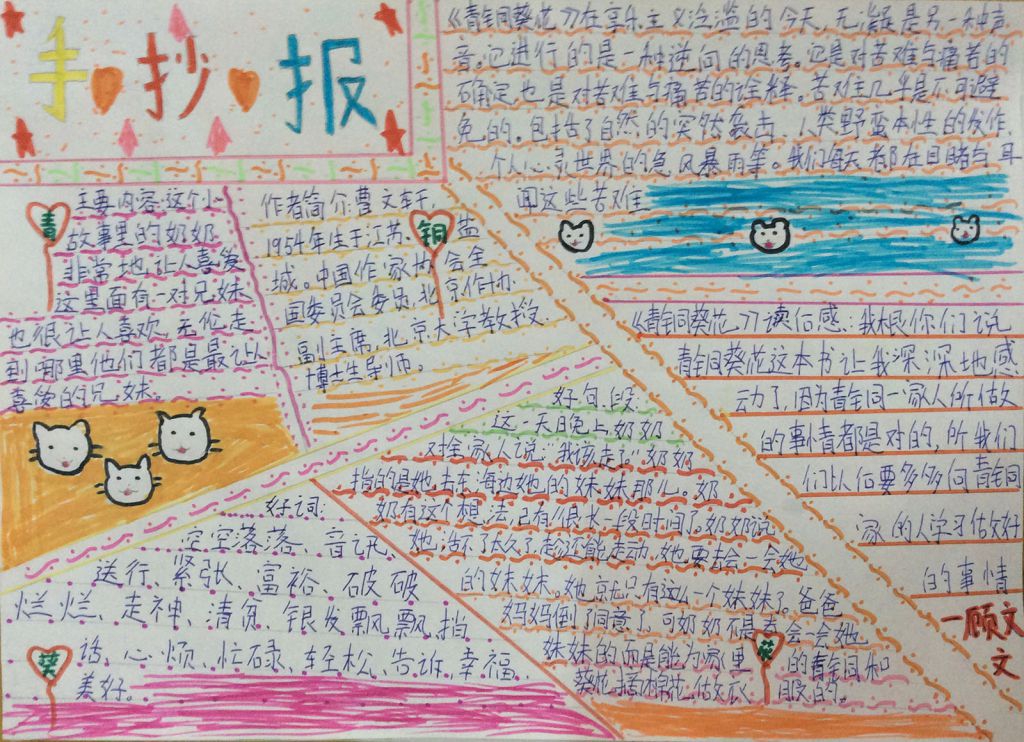 手抄报
《青铜葵花》在享乐主义泛滥的今天,无疑是另一种声
音。它进行的是一种逆向的思考。它是对苦难与痛苦的
确定,也是对苦难与痛苦的诠释。苦难几乎是不可避
免的。包括了自然的突然袭击,人类野蛮本性的发作,
个人心灵世界的急风暴雨等。我们每天都在目睹与耳
闻这些苦难
青
主要内容:这个小
故事里的奶奶
非常地让人喜爱
这里面有一对兄妹
也很让人喜欢,无伦走
到哪里他们都是最让人
喜爱的兄妹。
铜
作者简介:曹文轩,
1954年生于江苏盐
城。中国作家协会全
国委员会委员,北京作协
副主席,北京大学教授、
博士生导师。
《青铜葵花》读后感:我根你们说
青铜葵花这本书让我深深地感
动了,因为青铜一家人所做
的事情都是对的,所我们
们以后要多多向青铜
家的人学习做好
的事情
一顾文
文
好句段
这一天日晚上,奶奶
对全家人说:“我该走了”奶奶
指的是她去东海边她的妹妹那儿。奶
奶有这个想法,已有很长一段时间了。奶奶说
她活不了太久了,趁还能走动,她要去会一会她
的妹妹。她就只有这么一个妹妹了。爸爸
妈妈倒了同意了,可奶奶不是去会一会她
妹妹的而是能为家里的青铜和
葵花,摘棉花,做衣服的。
好词:
空空落落、音讯、
送行、紧张、富裕、破破
烂烂、走神、清贫、银发飘飘、挡
话、心烦、忙碌、轻松、告诉、幸福、
美好。
葵
花